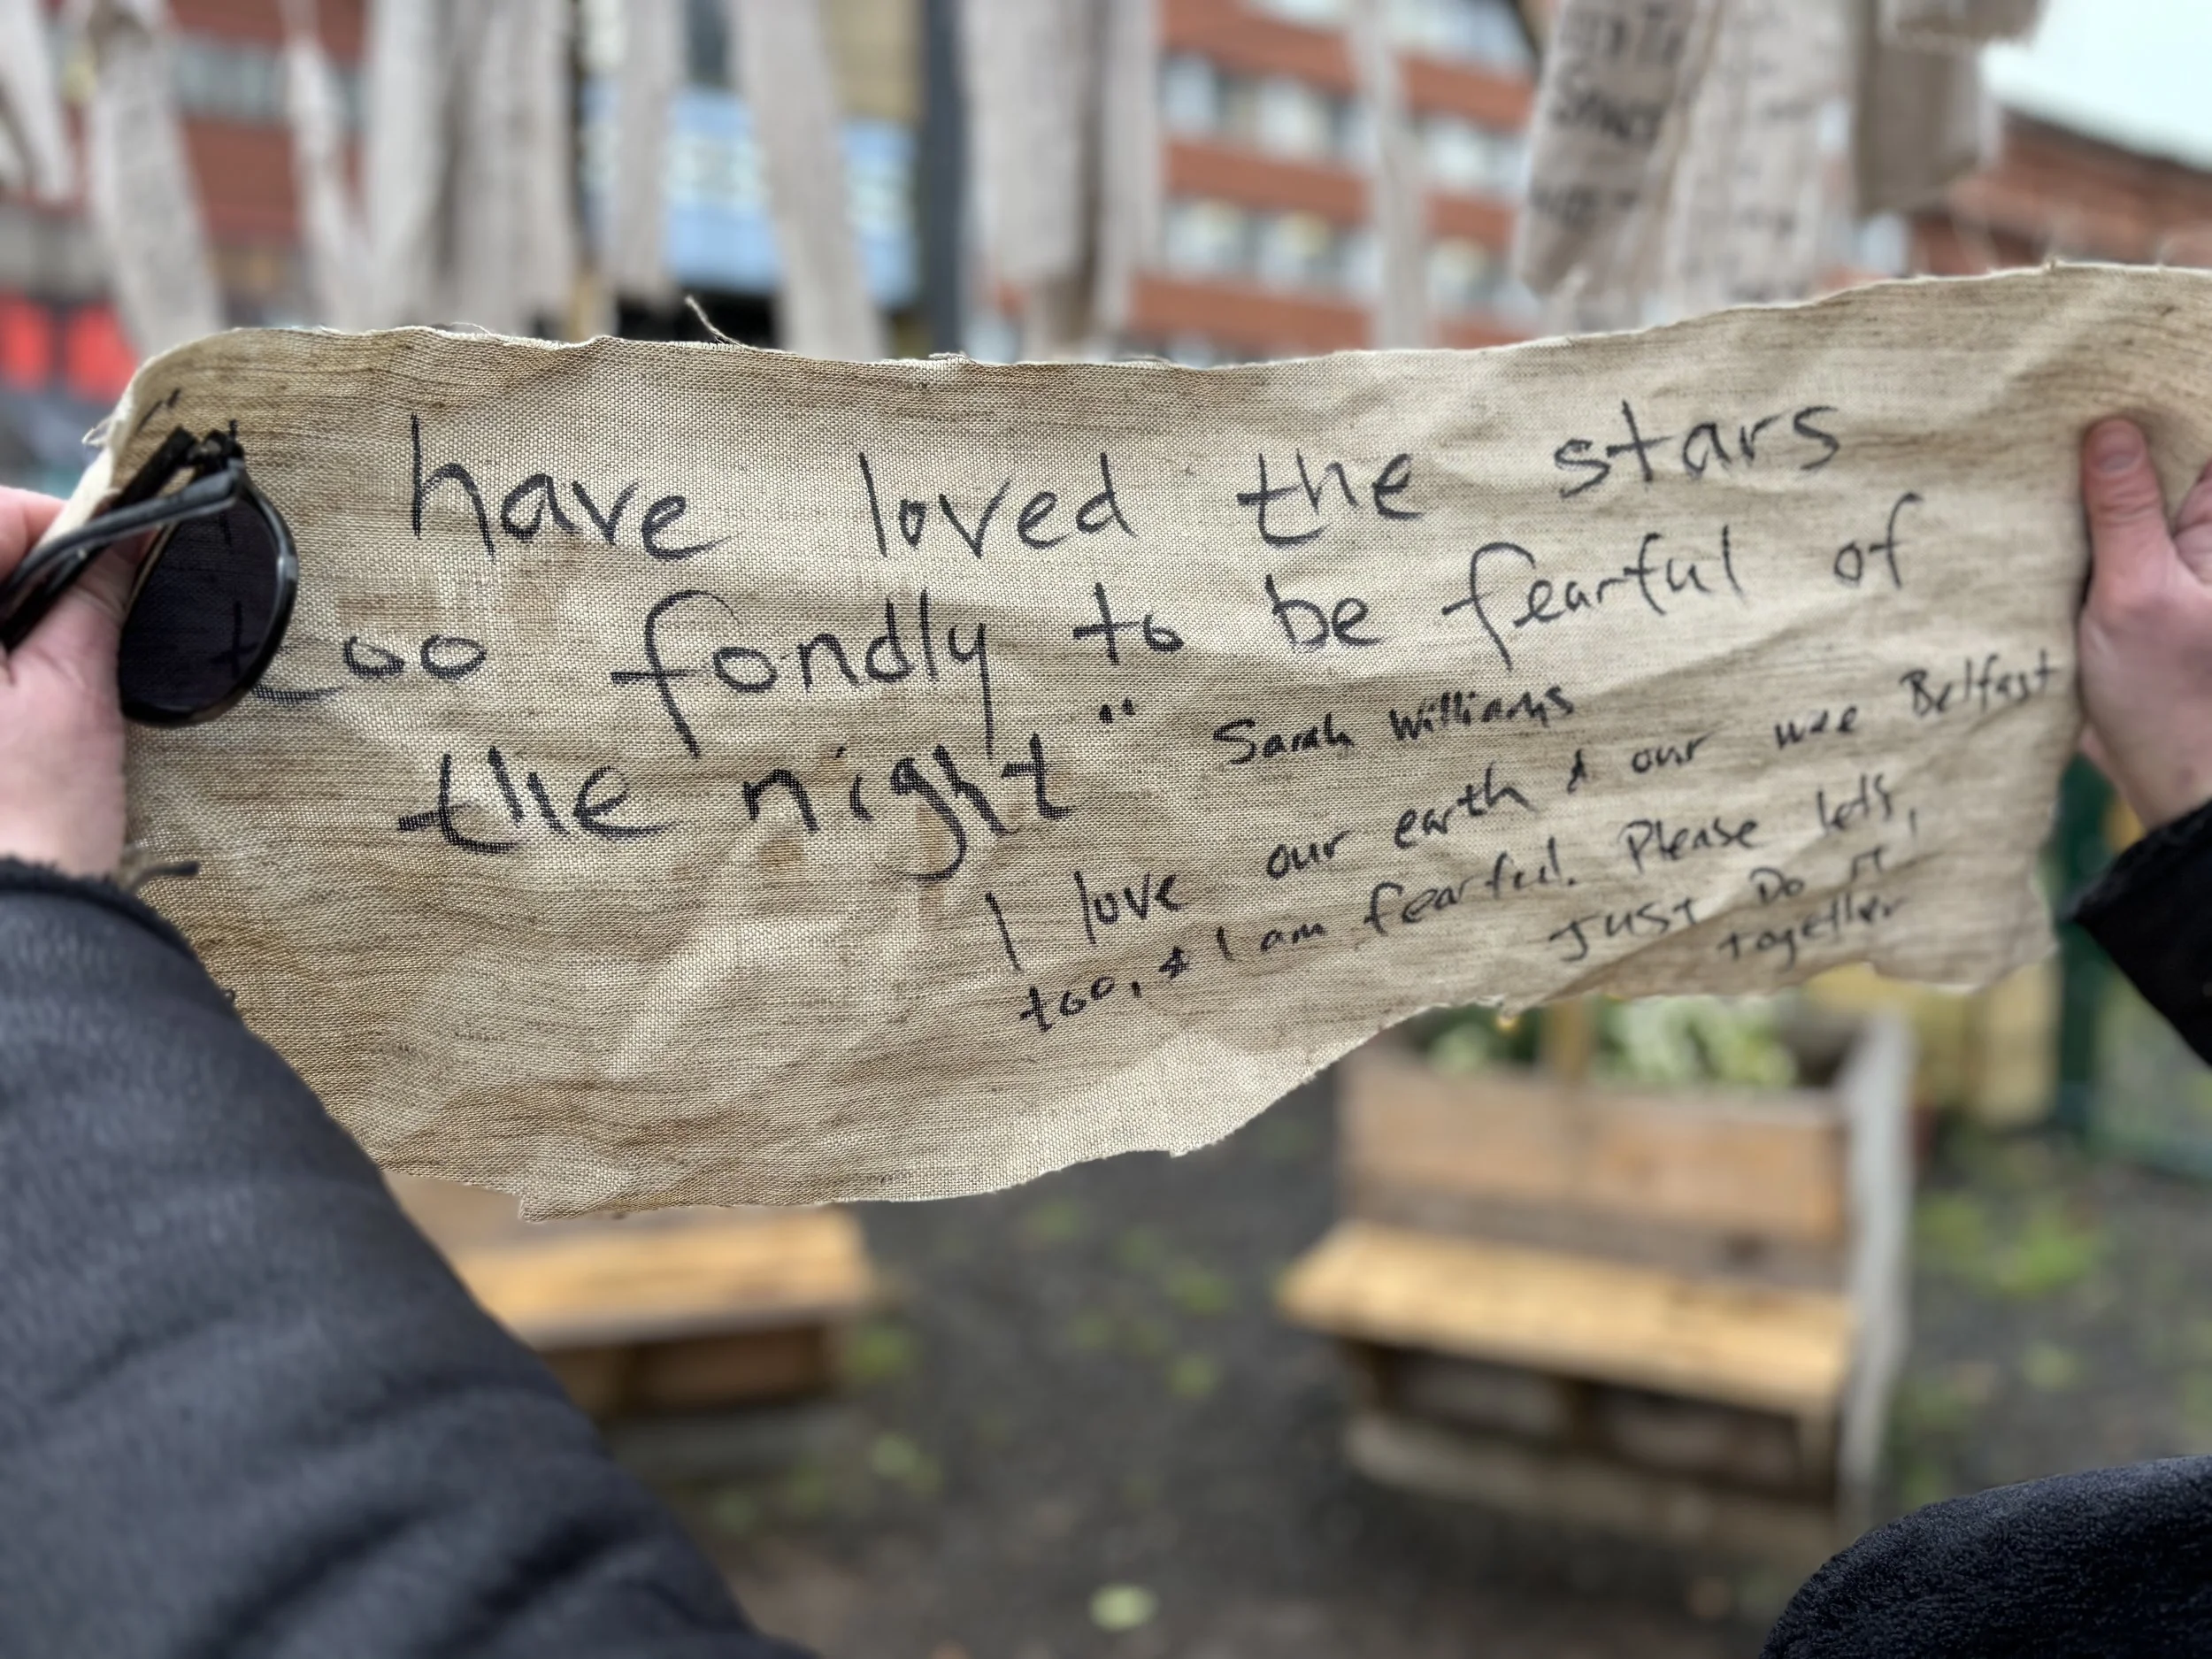 "I have loved the stars
too fondly to be fearful of
the night" Sarah Williams
I love our earth & our wee Belfast
too, & I am fearful. Please lets,
JUST Do IT,
together